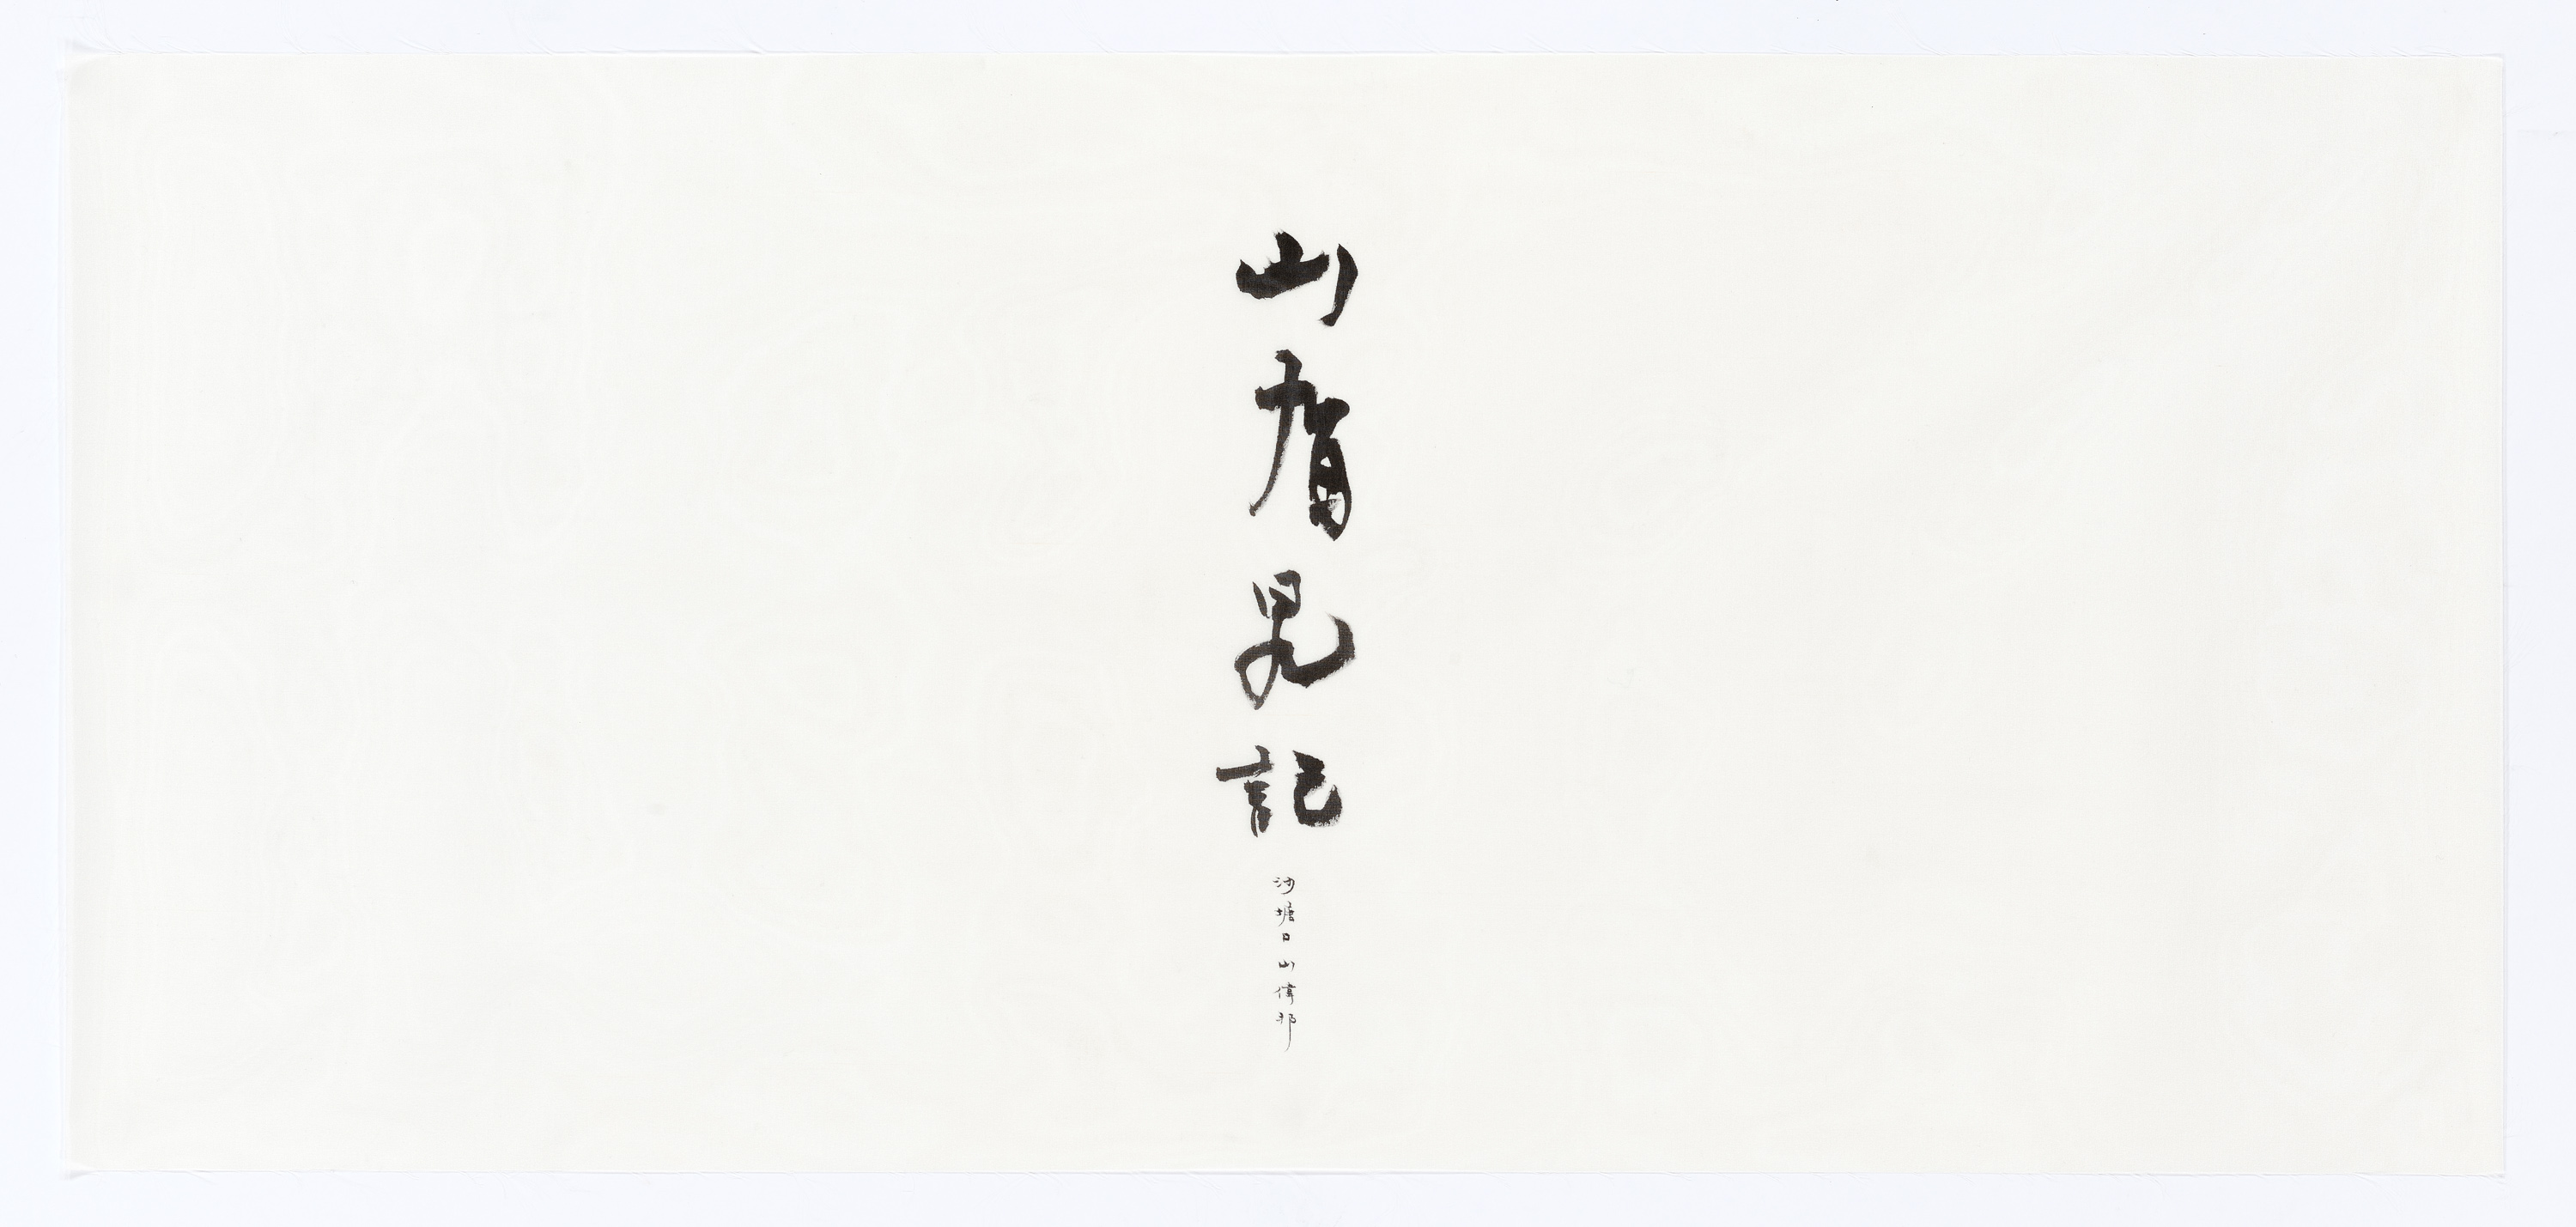 山見記
沙塘口山偉邦